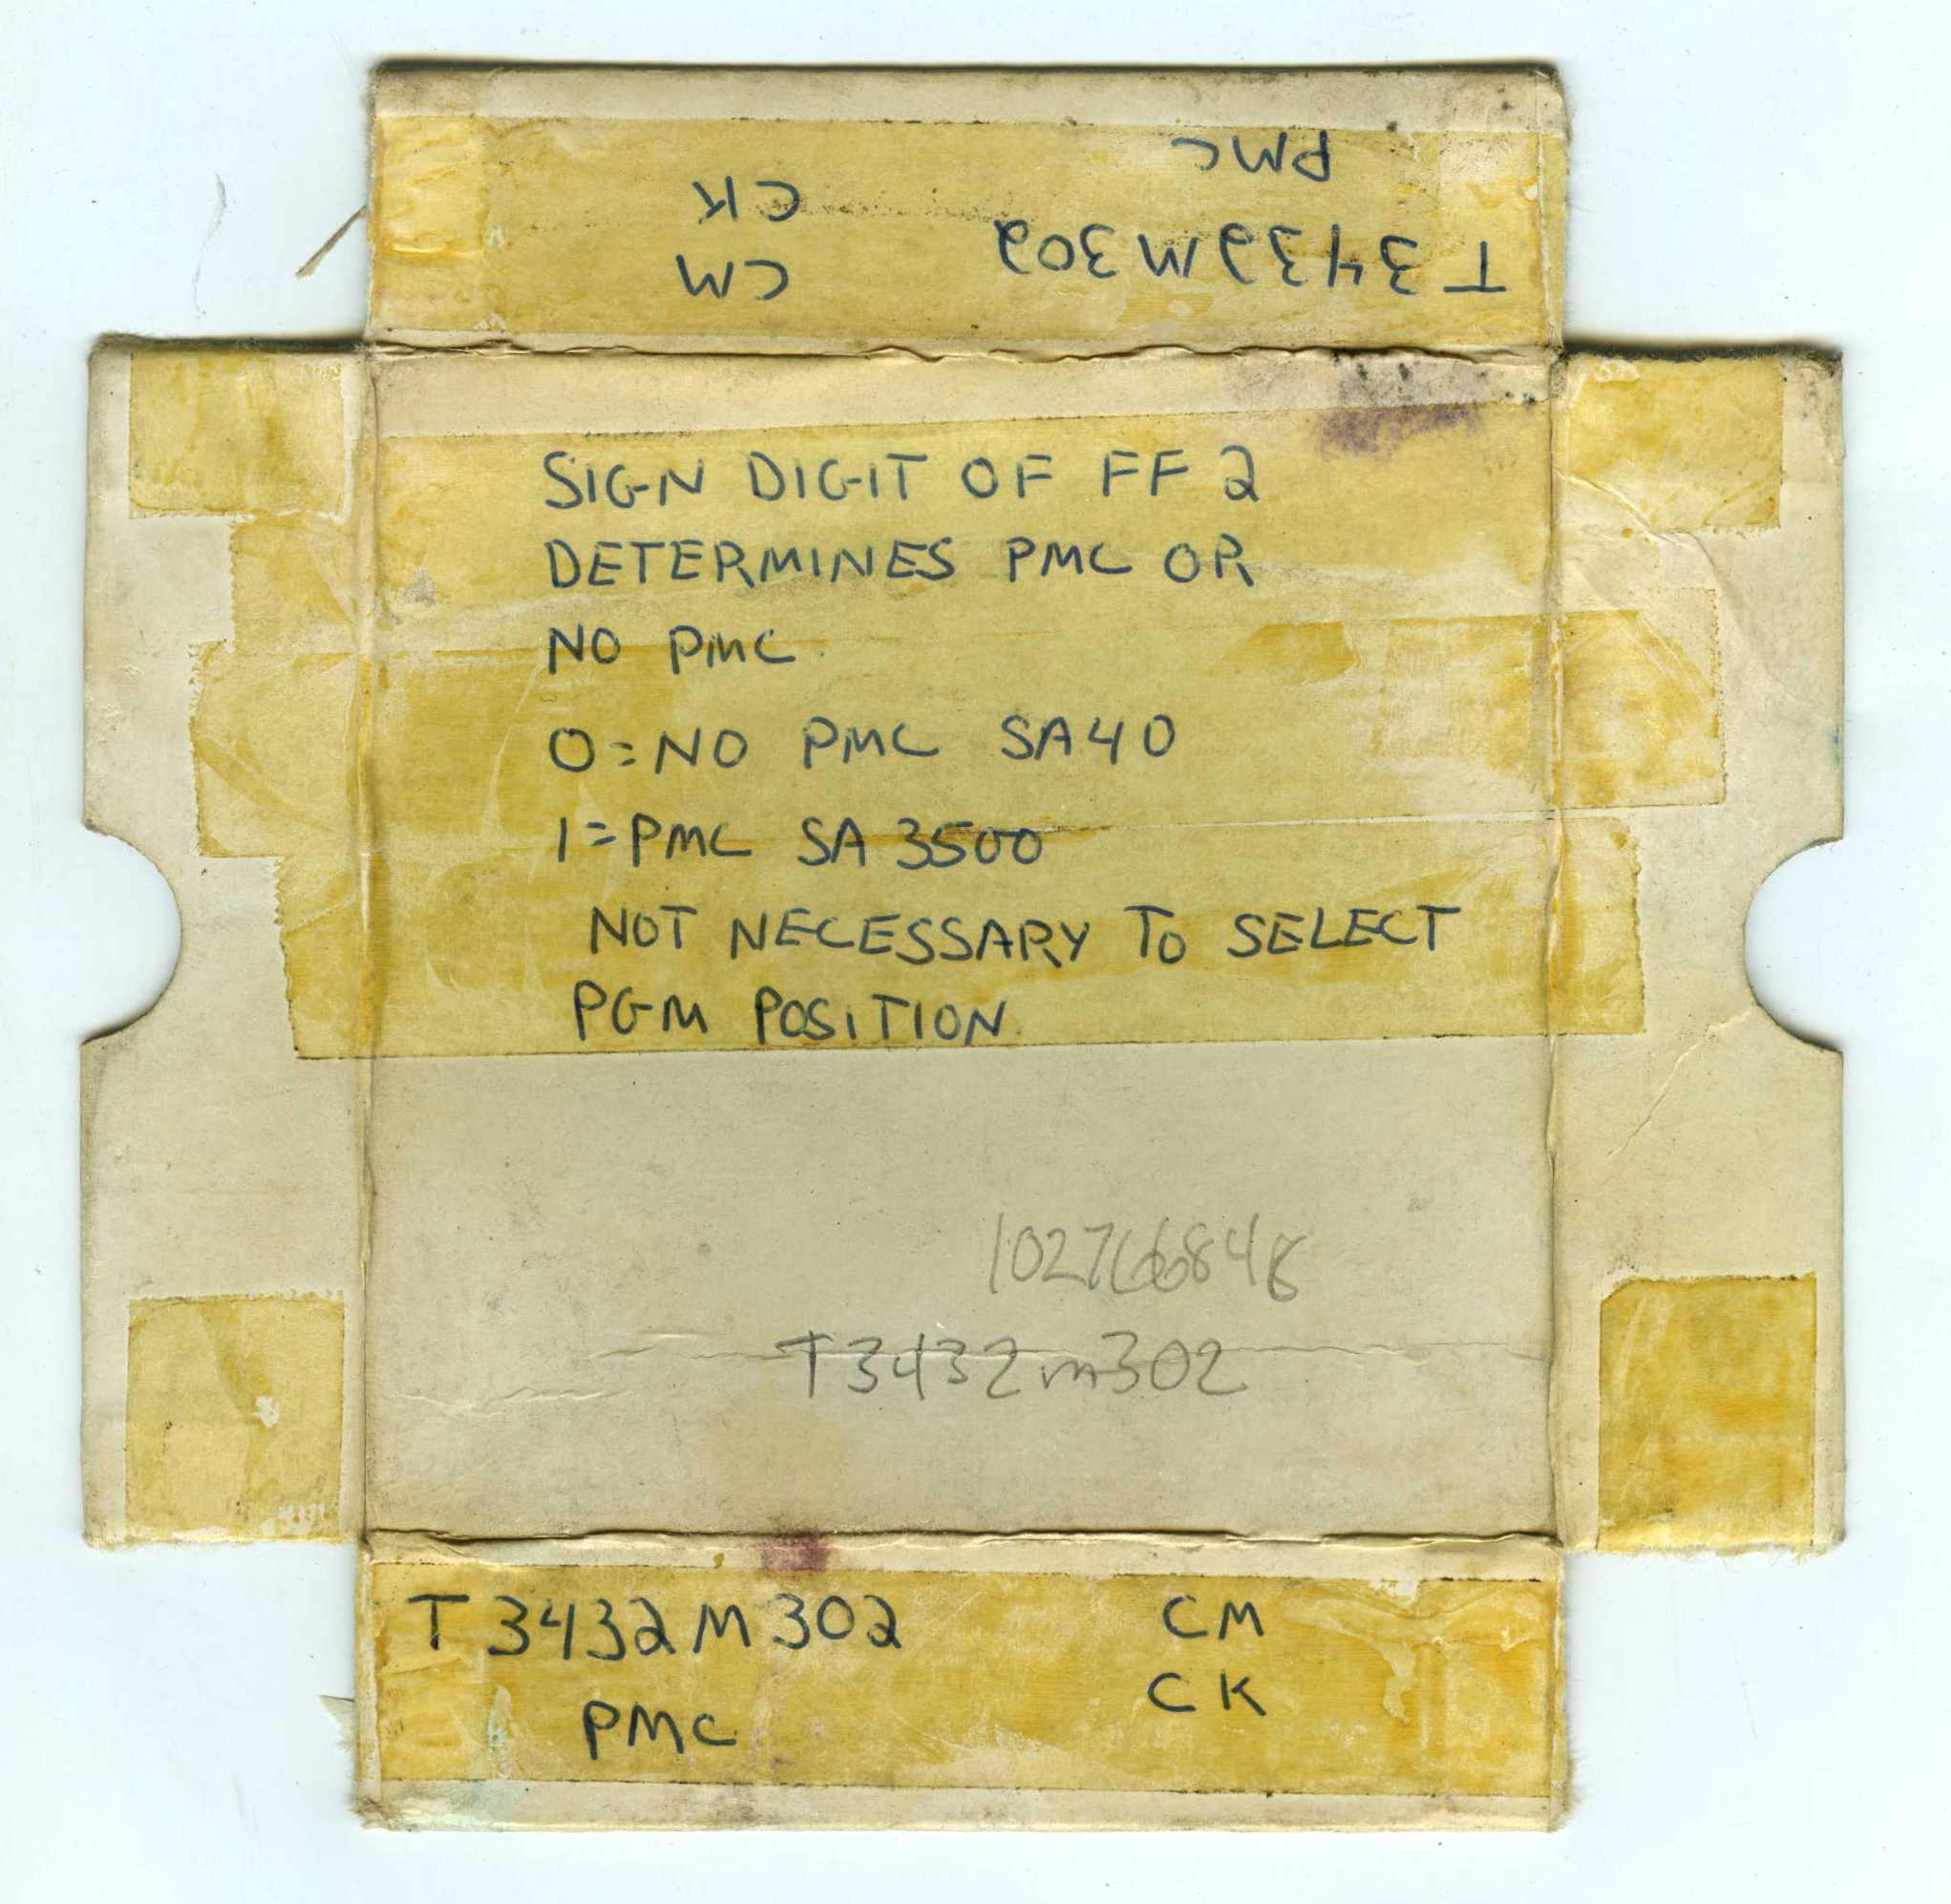 T3432M302
PMC
CM
CK
SIGN DIGIT OF FF2
DETERMINES PMC OR
NO PMC.
0=NO PMC SA40
1=PMC SA 3500
NOT NECESSARY TO SELECT
PGM POSITION.
102766848
T3432m302
T3432M302
PMC
CM
CK